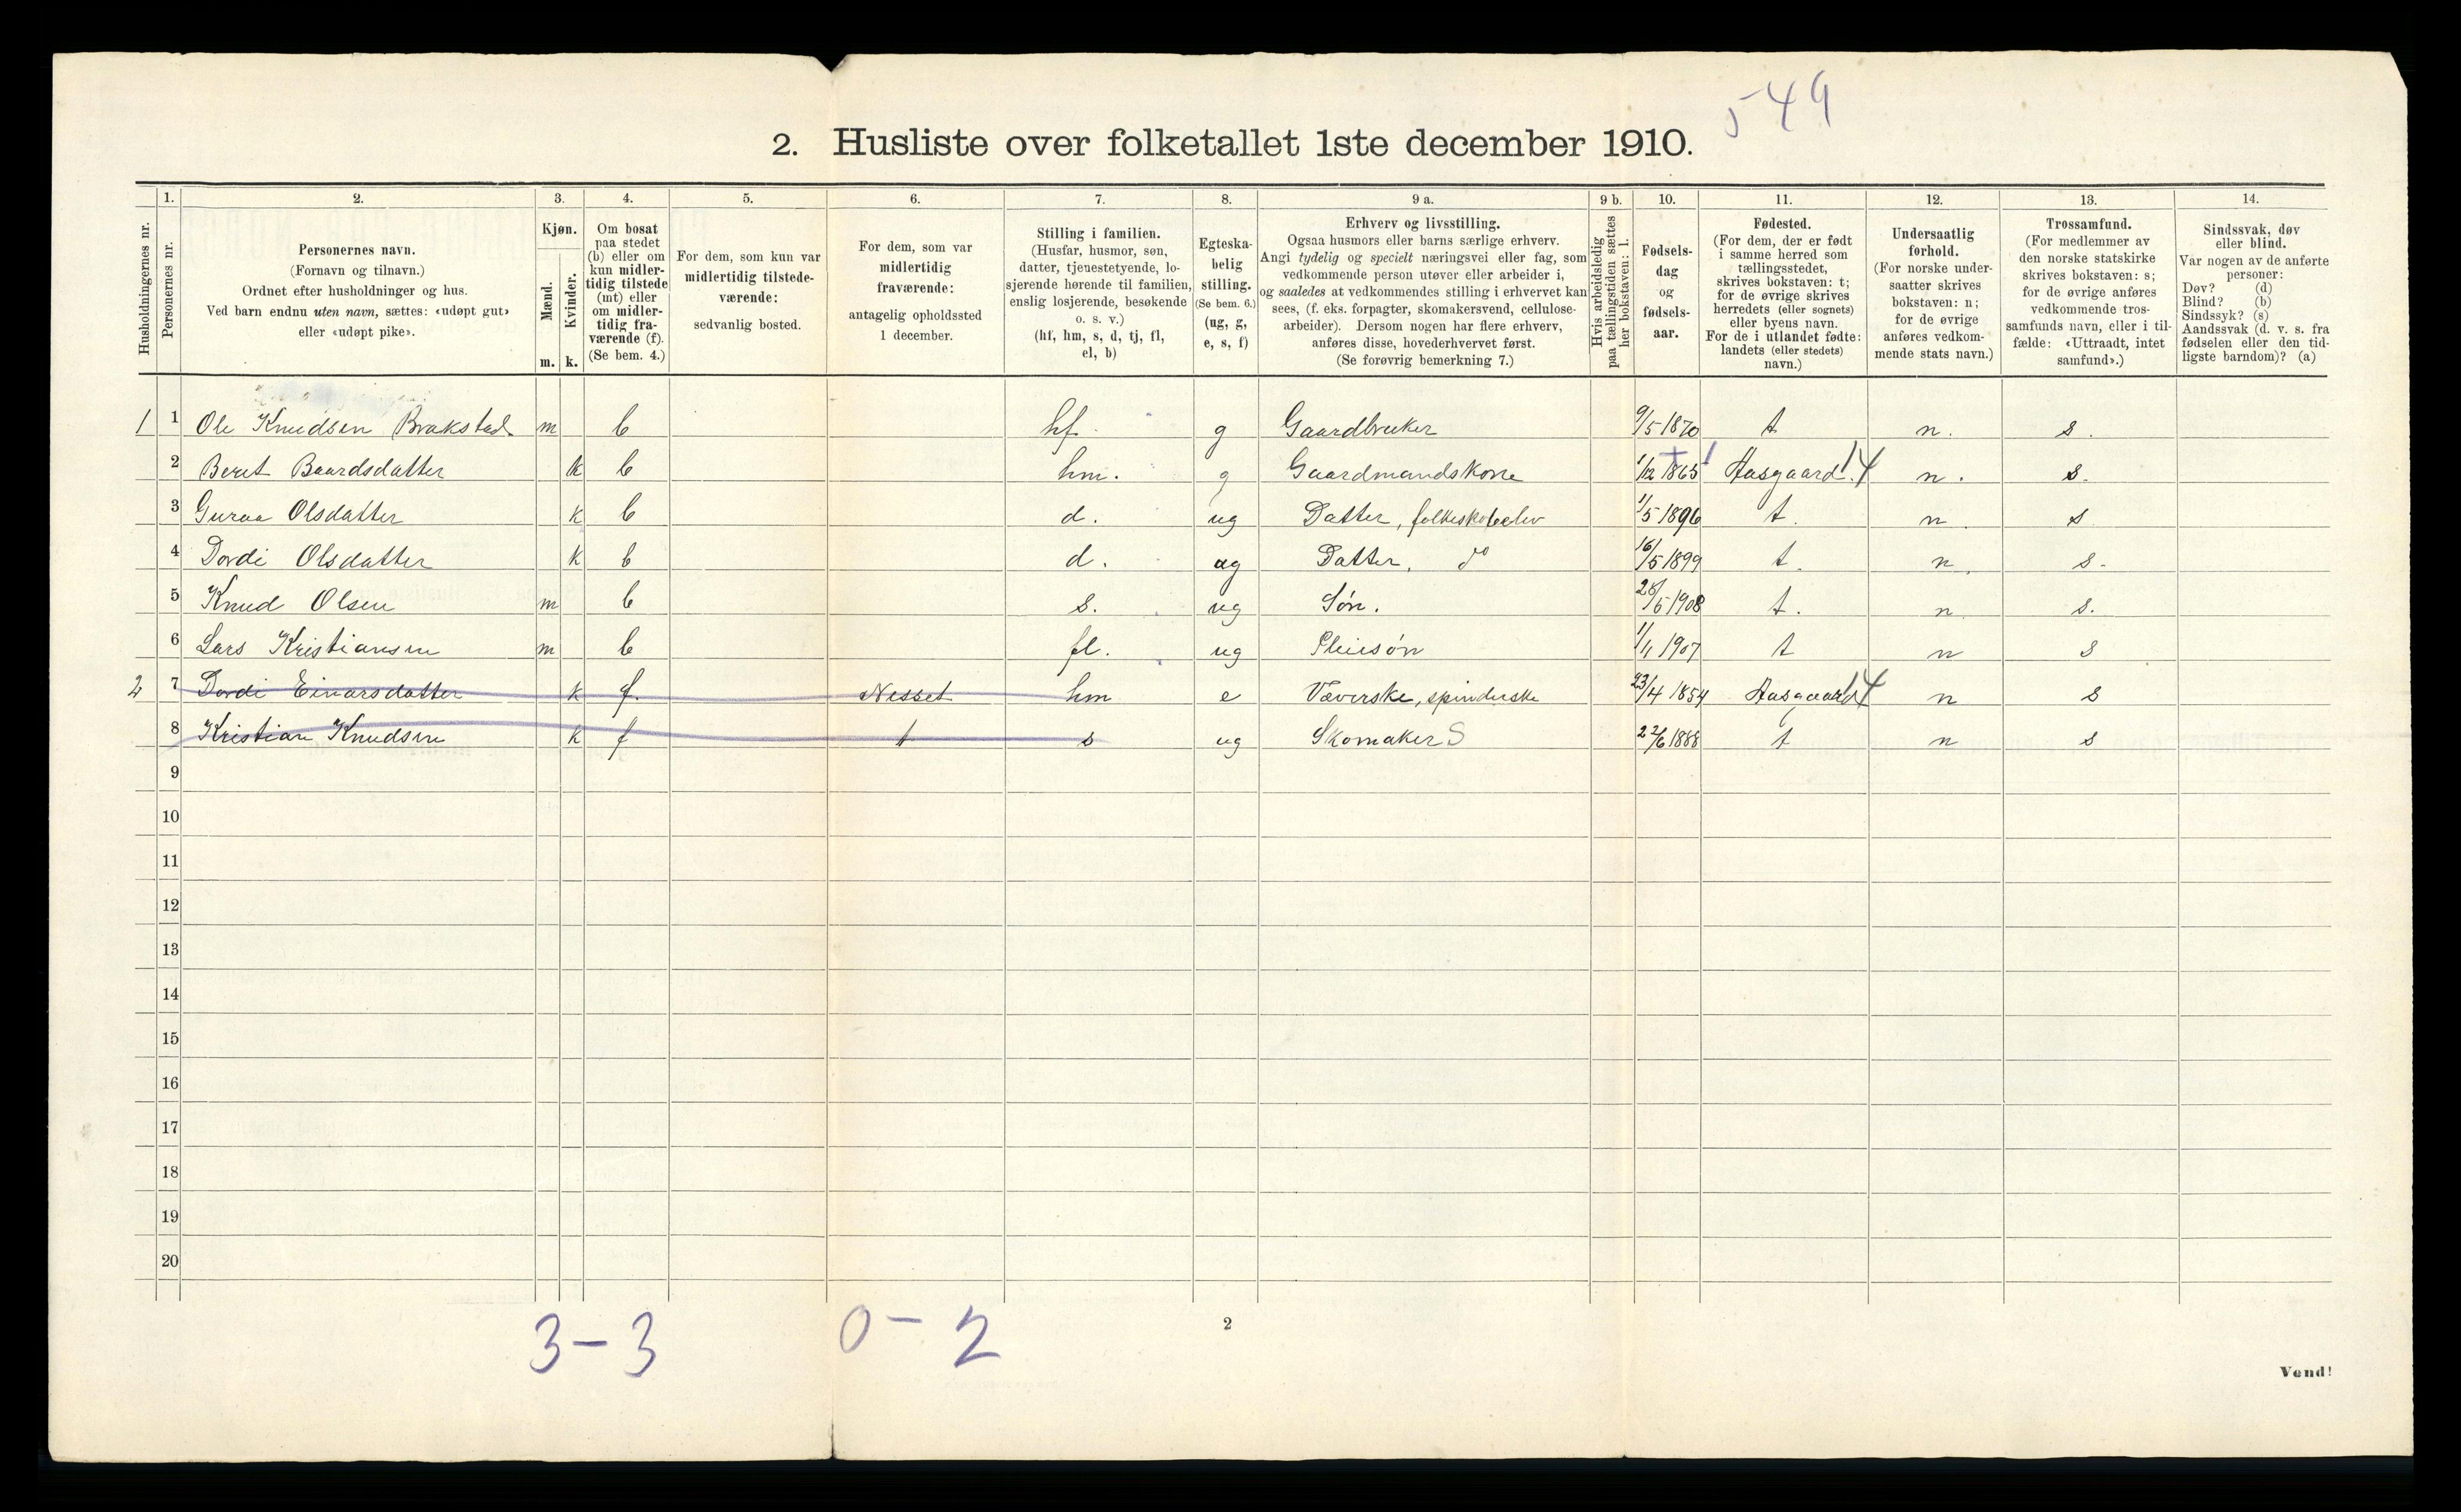 549
2. Husliste over folketallet 1ste december 1910.
Husholdningernes nr.
1. Personernes nr.
2. Personernes navn. (Fornavn og tilnavn.) Ordnet efter husholdninger og hus. Ved barn endnu uten navn, sættes: «udøpt gut» eller «udøpt pike».
3. Kjøn. Mænd. m. Kvinder. k.
4. Om bosat paa stedet (b) eller om kun midlertidig tilstede (mt) eller om midlertidig fraværende (f). (Se bem. 4.)
5. For dem, som kun var midlertidig tilstedeværende: sedvanlig bosted.
6. For dem, som var midlertidig fraværende: antagelig opholdssted 1 december.
7. Stilling i familien. (Husfar, husmor, søn, datter, tjenestetyende, losjerende hørende til familien, enslig losjerende, besøkende o. s. v.) (hf, hm, s, d, tj, fl, el, b)
8. Egteskabelig stilling. (Se bem. 6.) (ug, g, e, s, f)
9 a. Erhverv og livsstilling. Ogsaa husmors eller barns særlige erhverv. Angi tydelig og specielt næringsvei eller fag, som vedkommende person utøver eller arbeider i, og saaledes at vedkommendes stilling i erhvervet kan sees, (f. eks. forpagter, skomakersvend, cellulosearbeider). Dersom nogen har flere erhverv, anføres disse, hovederhvervet først. (Se forøvrig bemerkning 7.)
9 b. Hvis arbeidsledig paa tællingstiden sættes her bokstaven: l.
10. Fødselsdag og fødselsaar.
11. Fødested. (For dem, der er født i samme herred som tællingsstedet, skrives bokstaven: t; for de øvrige skrives herredets (eller sognets) eller byens navn. For de i utlandet fødte: landets (eller stedets) navn.)
12. Undersaatlig forhold. (For norske undersaatter skrives bokstaven: n; for de øvrige anføres vedkommende stats navn.)
13. Trossamfund. (For medlemmer av den norske statskirke skrives bokstaven: s; for de øvrige anføres vedkommende trossamfunds navn, eller i tilfælde: «Uttraadt, intet samfund».)
14. Sindssvak, døv eller blind. Var nogen av de anførte personer: Døv? (d) Blind? (b) Sindssyk? (s) Aandssvak (d. v. s. fra fødselen eller den tidligste barndom)? (a)
1 1 Ole Knudsen Brakstad m b hf. g Gaardbruker 9/5 1870 t n. s.
2 Beret Baardsdatter k b hm. g Gaardmandskone 1/12 1865 Aasgaard 14 n. s.
3 Guraa Olsdatter k b d. ug Datter, folkeskoleelev 1/5 1896 t. n. s
4 Dordi Olsdatter k b d. ug Datter, do 16/5 1899 t. n. s.
5 Knud Olsen m b s. ug Søn. 28/5 1908 t. n. s.
6 Lars Kristiansen m b fl. ug Pleiesøn 1/1 1907 t n s
2 7 Dordi Einarsdatter k f. Nesset hm e Væverske, spinderske 23/4 1854 Aasgaard 14 n s
8 Kristian Knudsen k f t s ug Skomaker S 22/6 1888 t n s
9
10
11
12
13
14
15
16
17
18
19
20
3 - 3 0 - 2
2
Vend!